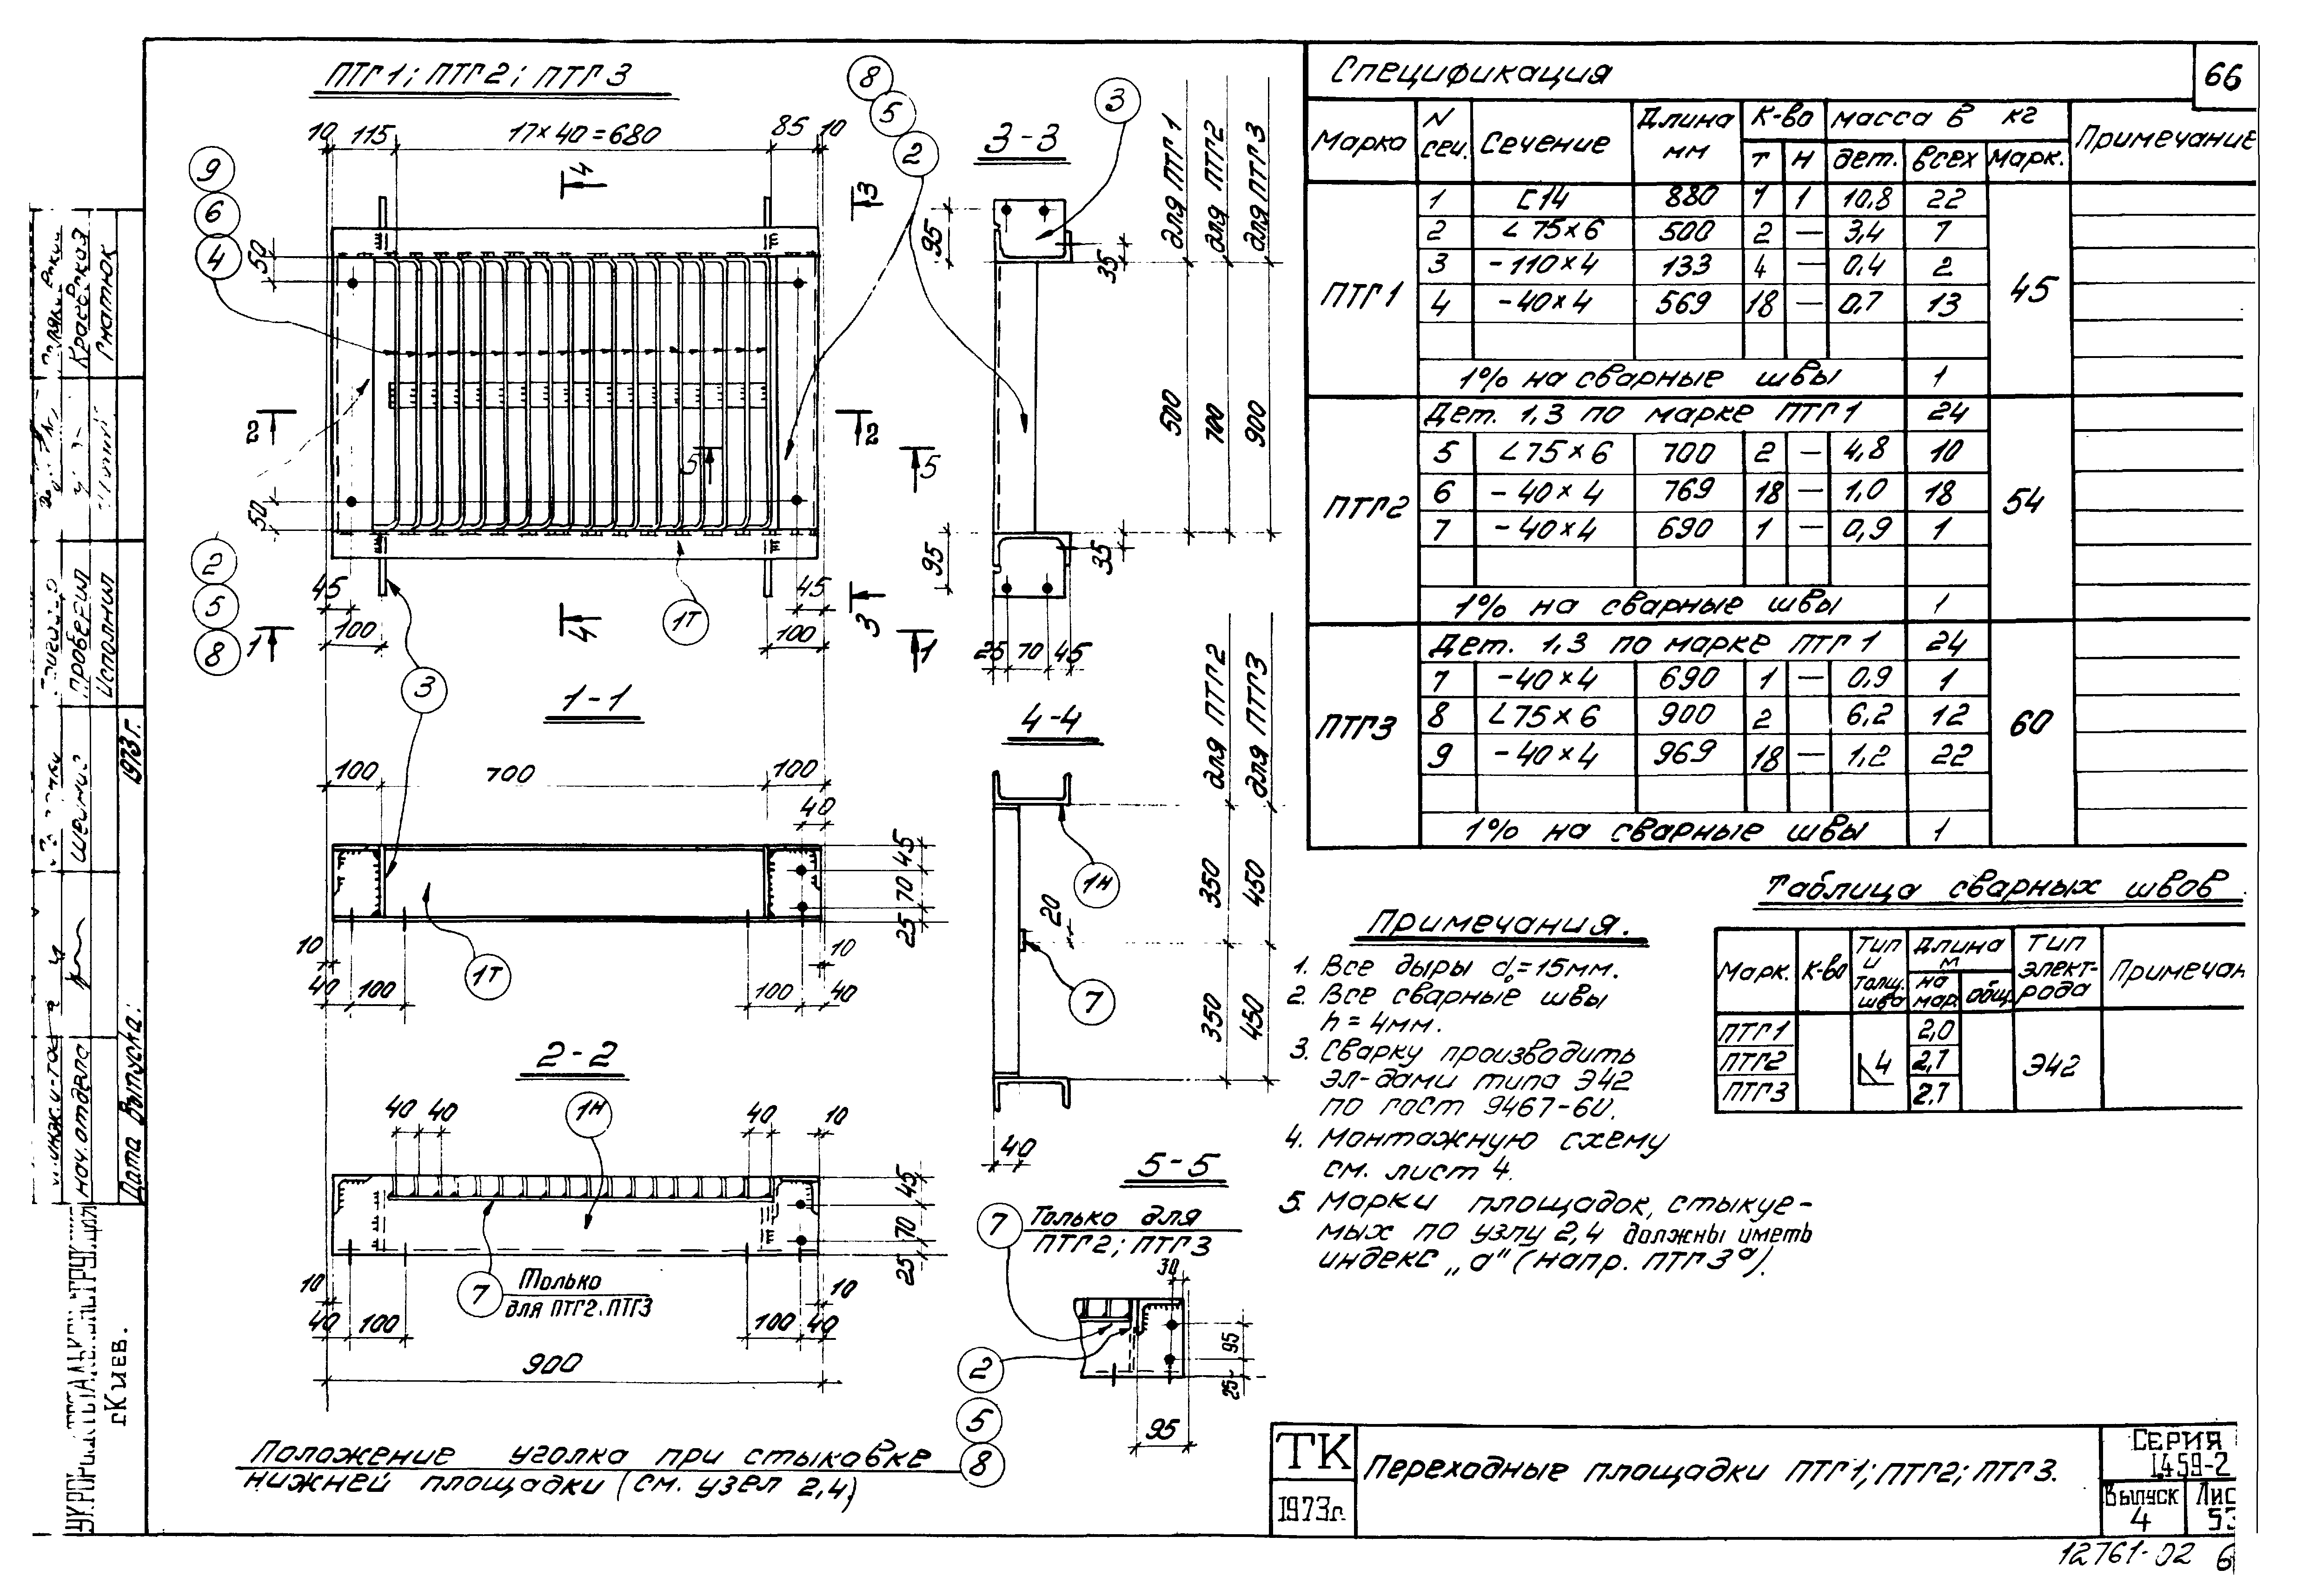 ПТГ1; ПТГ2; ПТГ3
10 115 17×40=680 85 10
9
6
4
8
5
2
3
4
3
50
50
2
2
5
5
2
5
8
45
45
100
100
1
4
3
1
1Т
3
3-3
95
35
95
35
25 70 45
для ПТГ1
для ПТГ2
для ПТГ3
500
700
900
1-1
100 700 100
40
45
70
25
10
10
40 100
100 40
1Т
2-2
40 40
40
10
1Н
45
70
25
7
Только
для ПТГ2. ПТГ3
10
10
40 100
100 40
900
4-4
для ПТГ2
для ПТГ3
1Н
350
450
20
7
350
450
40
5-5
7
Только для
ПТГ2; ПТГ3
30
95
25
95
2
5
8
Положение уголка при стыковке
нижней площадки (см. узел 2,4)
Спецификация
66
Марка N сеч. Сечение Длина мм К-во т н масса в кг дет. всех марк. Примечание
ПТГ1
1 С14 880 1 1 10,8 22
2 ∠75×6 500 2 — 3,4 7
3 -110×4 133 4 — 0,4 2
4 -40×4 569 18 — 0,7 13
45
1% на сварные швы 1
ПТГ2
Дет. 1,3 по марке ПТГ1 24
5 ∠75×6 700 2 — 4,8 10
6 -40×4 769 18 — 1,0 18
7 -40×4 690 1 — 0,9 1
54
1% на сварные швы 1
ПТГ3
Дет. 1,3 по марке ПТГ1 24
7 -40×4 690 1 — 0,9 1
8 ∠75×6 900 2 6,2 12
9 -40×4 969 18 — 1,2 22
60
1% на сварные швы 1
Таблица сварных швов
Марк. К-во Тип и толщ. шва Длина м на мар. общ. Тип электрода Примечан
ПТГ1 2,0
ПТГ2 4 2,7 Э42
ПТГ3 2,7
Примечания.
1. Все дыры d₀=15мм.
2. Все сварные швы
h = 4мм.
3. Сварку производить
эл-дами типа Э42
по гост 9467-60.
4. Монтажную схему
см. лист 4.
5. Марки площадок, стыкуе-
мых по узлу 2,4 должны иметь
индекс „а" (напр. ПТГ3ᵃ).
ТК
1973г.
Переходные площадки ПТГ1; ПТГ2; ПТГ3.
СЕРИЯ
1.459-2
Выпуск
4
Лис
12761-02 6
Гнатюк
Проверил
Исполнил
1973г.
Нач. отдела
Дата выпуска:
г Киев.